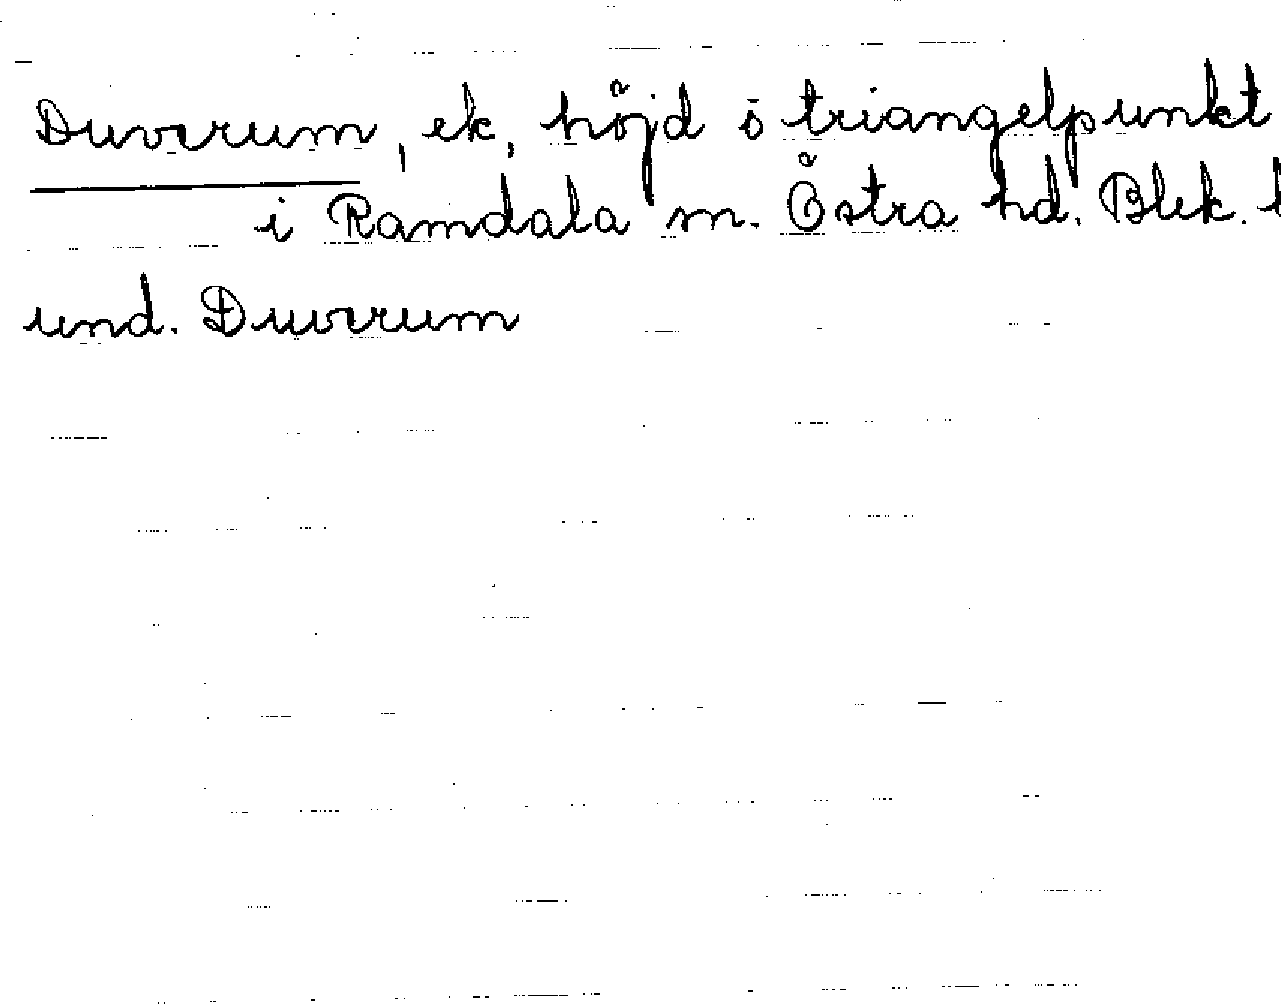 Duverum, ek, höjd o triangelpunkt
i Ramdala sn. Östra hd. Blek. l
und. Duverum